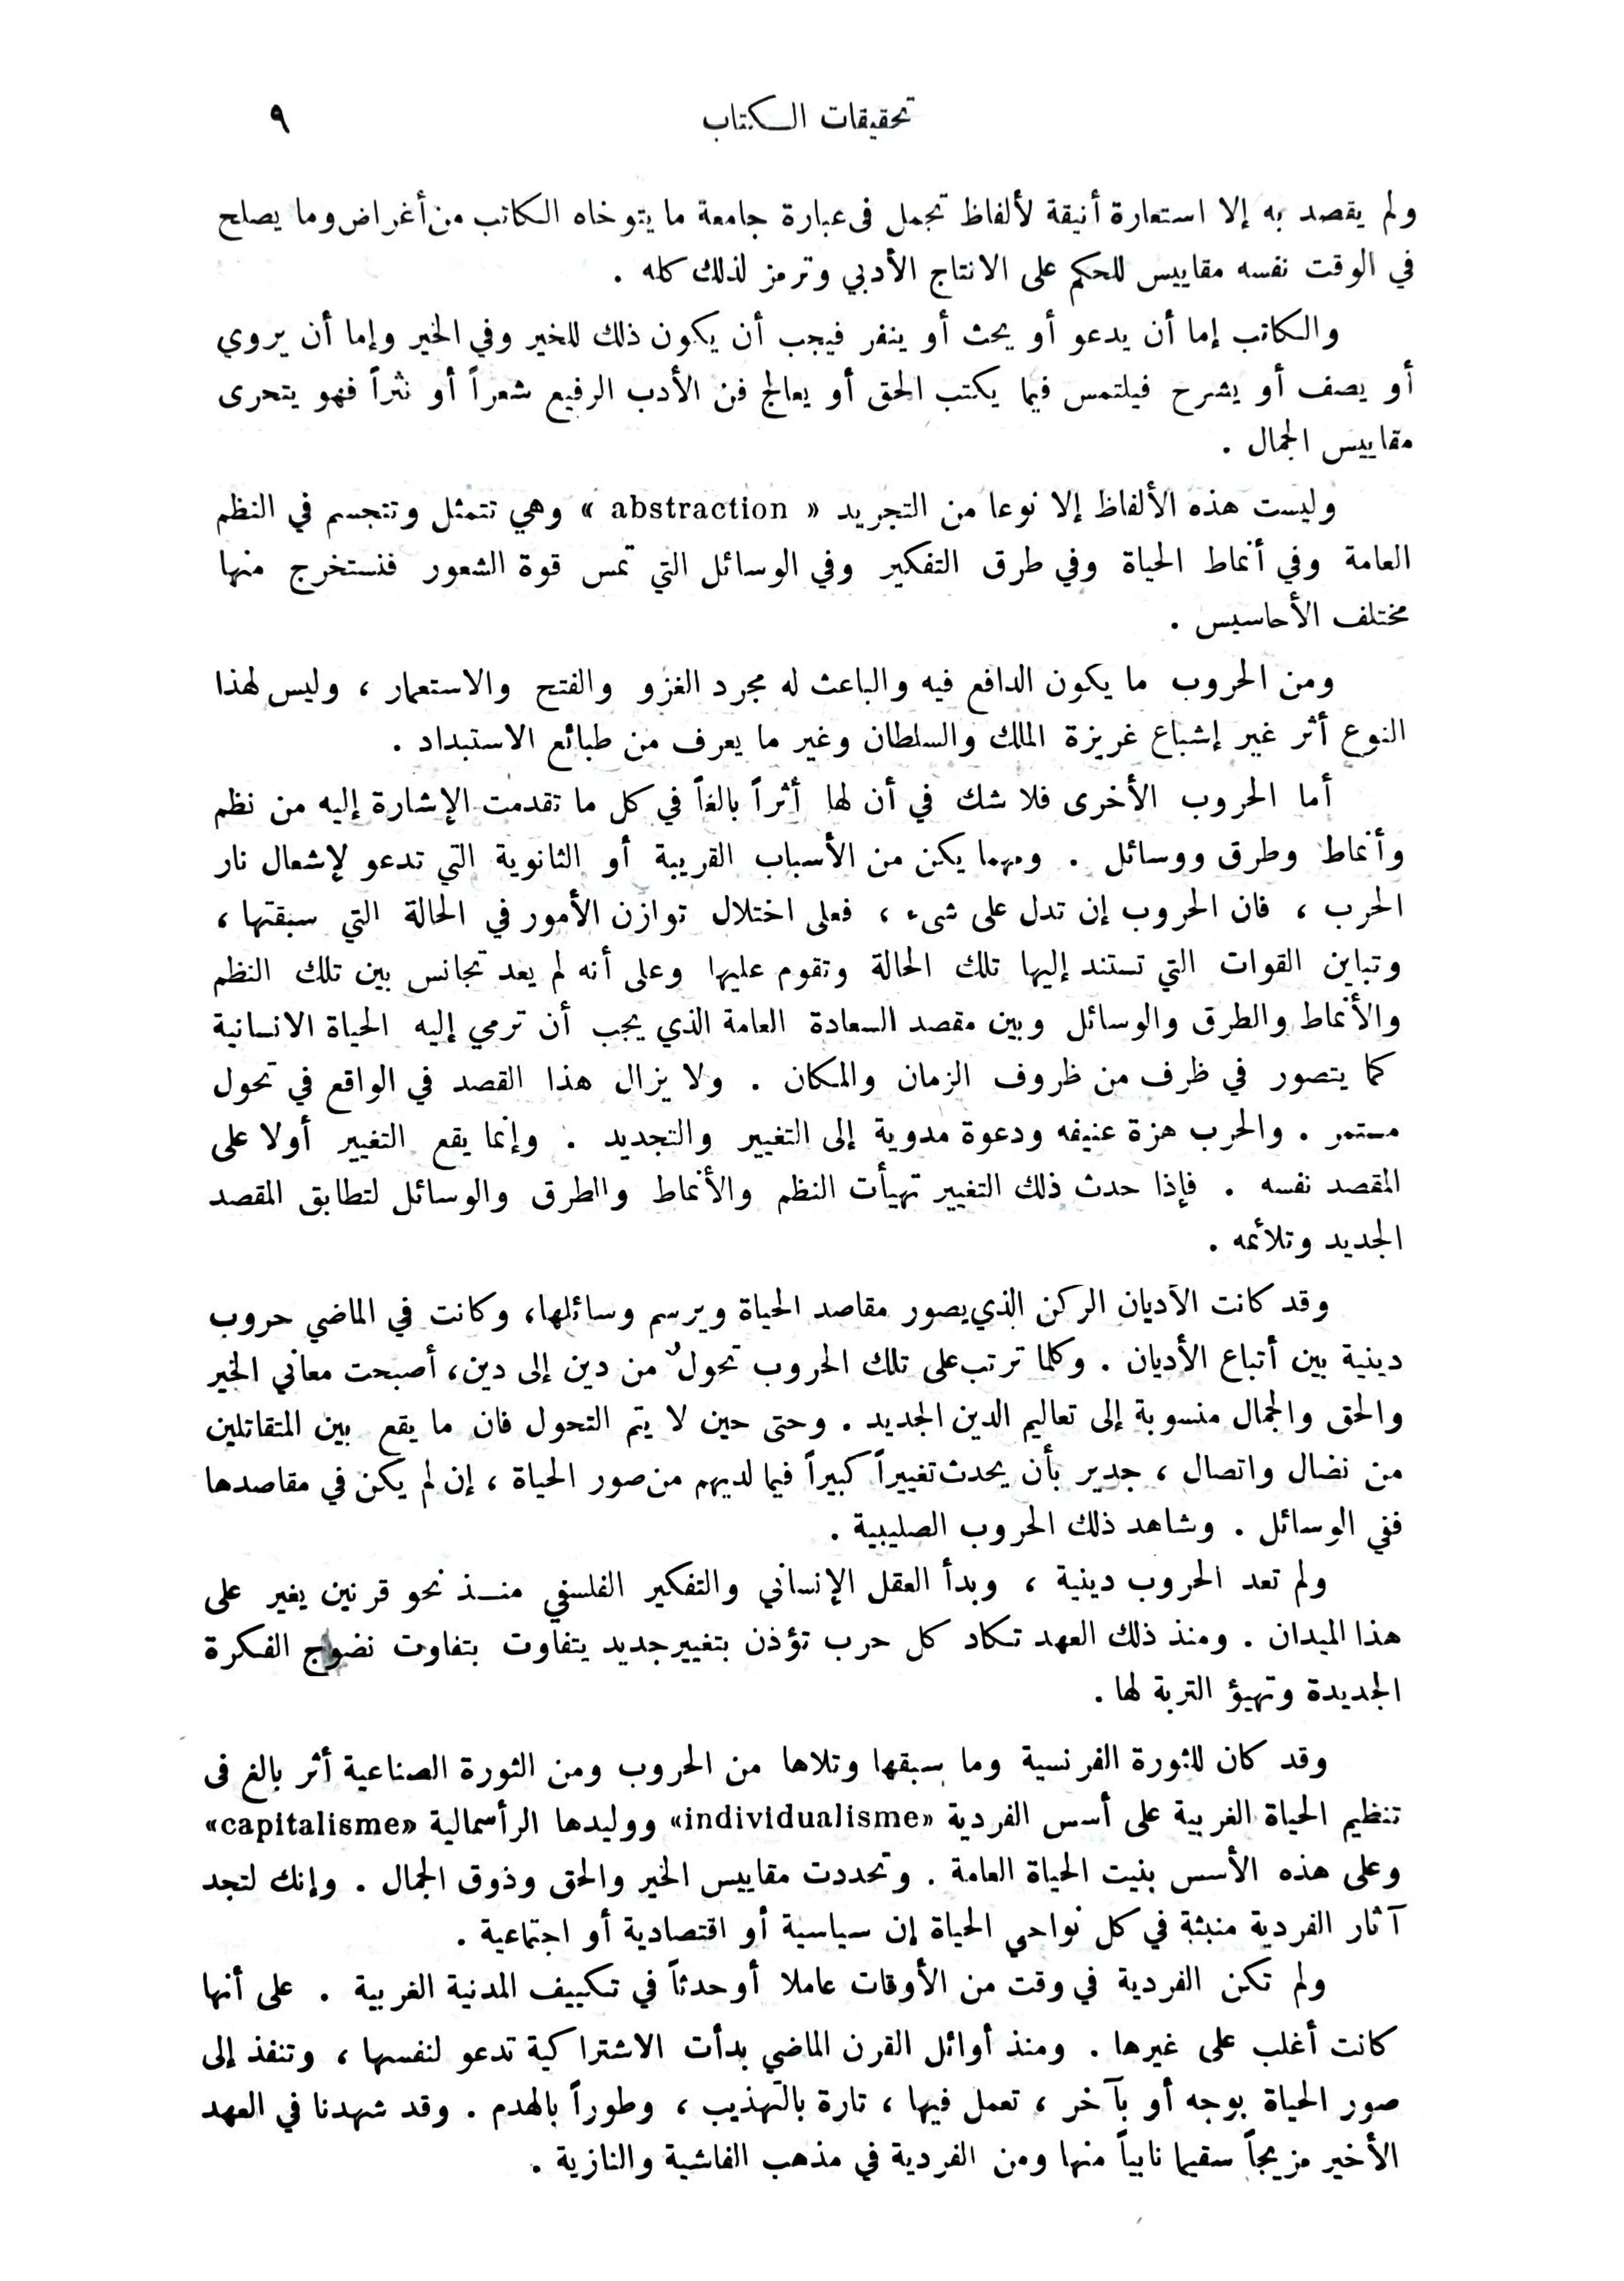 تحقيقات الكتاب ٩
ولم يقصد به إلا استعارة أنيقة لألفاظ تجمل فى عبارة جامعة ما يتوخاه الكاتب من أغراض وما يصلح
في الوقت نفسه مقاييس للحكم على الانتاج الأدبي وترمز لذلك كله .
والكاتب إما أن يدعو أو يحث أو ينفر فيجب أن يكون ذلك للخير وفي الخير وإما أن يروي
أو يصف أو يشرح فيلتمس فيما يكتب الحق أو يعالج فن الأدب الرفيع شعراً أو نثراً فهو يتحرى
مقاييس الجمال .
وليست هذه الألفاظ إلا نوعا من التجريد « abstraction » وهي تتمثل وتتجسم في النظم
العامة وفي أنماط الحياة وفي طرق التفكير وفي الوسائل التي تمس قوة الشعور فنستخرج منها
مختلف الأحاسيس .
ومن الحروب ما يكون الدافع فيه والباعث له مجرد الغزو والفتح والاستعمار ، وليس لهذا
النوع أثر غير إشباع غريزة الملك والسلطان وغير ما يعرف من طبائع الاستبداد .
أما الحروب الأخرى فلا شك في أن لها أثراً بالغاً في كل ما تقدمت الإشارة إليه من نظم
وأنماط وطرق ووسائل . ومهما يكن من الأسباب القريبة أو الثانوية التي تدعو لإشعال نار
الحرب ، فان الحروب إن تدل على شىء ، فعلى اختلال توازن الأمور في الحالة التي سبقتها ،
وتباين القوات التي تستند إليها تلك الحالة وتقوم عليها وعلى أنه لم يعد تجانس بين تلك النظم
والأنماط والطرق والوسائل وبين مقصد السعادة العامة الذي يجب أن ترمي إليه الحياة الانسانية
كما يتصور في ظرف من ظروف الزمان والمكان . ولا يزال هذا القصد في الواقع في تحول
مستمر . والحرب هزة عنيفه ودعوة مدوية إلى التغيير والتجديد . وإنما يقع التغيير أولا على
المقصد نفسه . فإذا حدث ذلك التغيير تهيأت النظم والأنماط والطرق والوسائل لتطابق المقصد
الجديد وتلائمه .
وقد كانت الأديان الركن الذي يصور مقاصد الحياة ويرسم وسائلها، وكانت في الماضي حروب
دينية بين أتباع الأديان . وكلما ترتب على تلك الحروب تحولٌ من دين إلى دين، أصبحت معاني الخير
والحق والجمال منسوبة إلى تعاليم الدين الجديد . وحتى حين لا يتم التحول فان ما يقع بين المتقاتلين
من نضال واتصال ، جدير بأن يحدث تغييراً كبيراً فيما لديهم من صور الحياة ، إن لم يكن في مقاصدها
ففي الوسائل . وشاهد ذلك الحروب الصليبية .
ولم تعد الحروب دينية ، وبدأ العقل الإنساني والتفكير الفلسفي منــذ نحو قرنين يغير على
هذا الميدان . ومنذ ذلك العهد تكاد كل حرب تؤذن بتغيير جديد يتفاوت بتفاوت نضوج الفكرة
الجديدة وتهيؤ التربة لها .
وقد كان للثورة الفرنسية وما سبقها وتلاها من الحروب ومن الثورة الصناعية أثر بالغ فى
تنظيم الحياة الغربية على أسس الفردية «individualisme» ووليدها الرأسمالية «capitalisme»
وعلى هذه الأسس بنيت الحياة العامة . وتحددت مقاييس الخير والحق وذوق الجمال . وإنك لتجد
آثار الفردية منبثة في كل نواحي الحياة إن سياسية أو اقتصادية أو اجتماعية .
ولم تكن الفردية في وقت من الأوقات عاملا أوحدثاً في تكييف المدنية الغربية . على أنها
كانت أغلب على غيرها . ومنذ أوائل القرن الماضي بدأت الاشتراكية تدعو لنفسها ، وتنفذ إلى
صور الحياة بوجه أو بآخر ، تعمل فيها ، تارة بالتهذيب ، وطوراً بالهدم . وقد شهدنا في العهد
الأخير مزيجاً سقيما نابياً منها ومن الفردية في مذهب الفاشية والنازية .